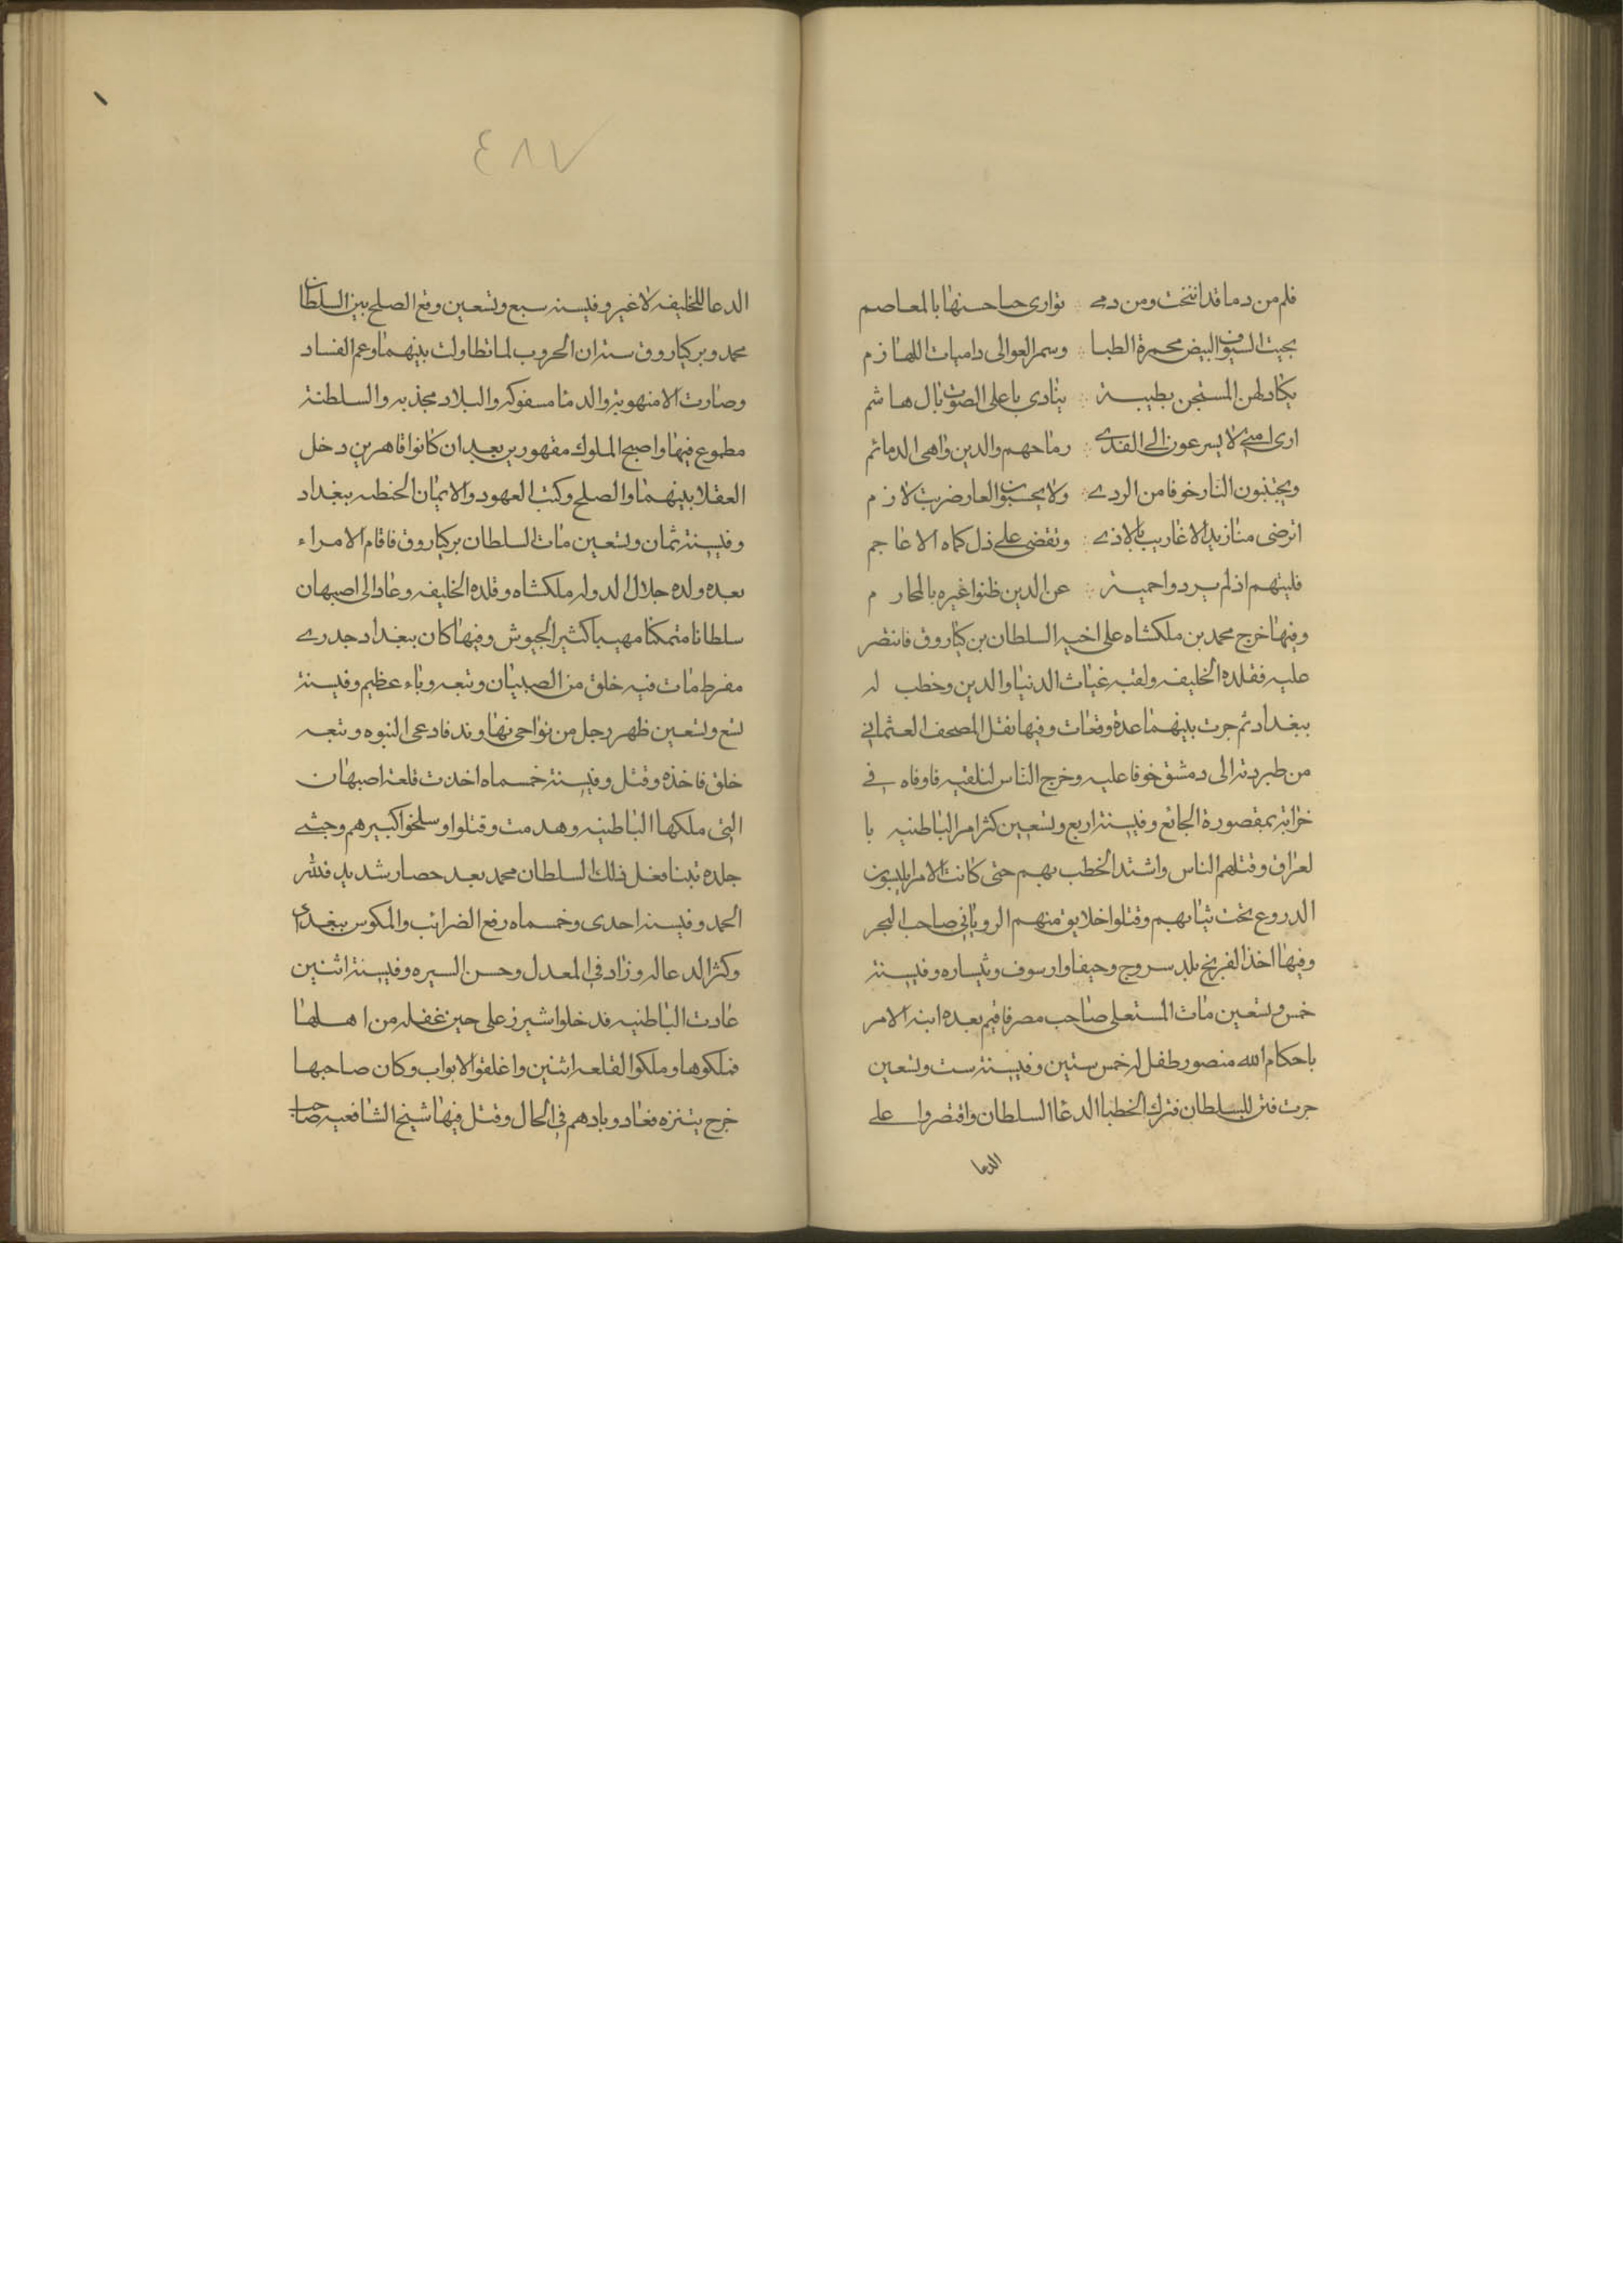 فلم من دما قد انتخت ومن دمے توارى حيا حسنها بالمعاصم
بحيث السيوف البيض محمرة الظبا وسمر العوالى داميات اللهازم
يكاد لهن المستجن بطيبة ينادى باعلى الصوت يال هاشم
ارى امتے لا يسرعون الے الفدے رماحهم والدين واهى الدمائم
ويجتنبون النار خوفا من الردے ولا يحسبون العار ضربت لازم
اترضى منازيد الاغاريب بالاذے وتقضى علے ذل كماه الاعاجم
فليتهم اذ لم يردوا حمية عن الدين ظنوا غيره بالمحارم
وفيها خرج محمد بن ملكشاه على اخيه السلطان بن كياروق فانتصر
عليه فقلده الخليفه ولقبه غياث الدنيا والدين وخطب له
ببغداد ثم جرت بينهما عدة وقعات وفيها نقل المصحف العثمانى
من طبرية الى دمشق خوفا عليه وخرج الناس لتلقيه فاوفاه فے
خزانة بمقصورة الجامع وفيسنة اربع وتسعين كثر امر الباطنيه با
لعراق وقتلهم الناس واشتد الخطب بهم حتى كانت الامرا يلبسون
الدروع تحت ثيابهم وقتلوا خلايق منهم الرويانى صاحب البحر
وفيها اخذ الفرنج بلد سروج وحيفا وارسوف وقيساره وفيسنة
خمس وتسعين مات المستعلى صاحب مصر فاقيم بعده ابنه الامر
باحكام الله منصور طفل له خمس ستين وفيسنة ست وتسعين
جرت فتن للسلطان فترك الخطبا الدعا السلطان واقتصروا علے
الدعا
٤٨٧
الدعا للخليفه لا غير وفيسنه سبع وتسعين وقع الصلح بين السلطان
محمد وبركياروق سته ان الحروب لما تطاولت بينهما وعم الفساد
وصارت الامنهوبة والدما مسفوكه والبلاد مجذبه والسلطنة
مطموع فيها واصبح الملوك مقهورين بعد ان كانوا قاهرين دخل
العقلا بينهما والصلح وكتب العهود والايمان الخطبه ببغداد
وفيسنة ثمان وتسعين مات السلطان بركياروق فاقام الامراء
بعده ولده جلال الدوله ملكشاه وقلده الخليفه وعاد الى اصبهان
سلطانا متمكنا مهيبا كثير الجيوش وفيها كان ببغداد جدرے
مفرط مات فيه خلق من الصبيان وتبعه وباء عظيم وفيسنة
تسع وتسعين ظهر رجل من نواحى نهاوند فادعى النبوه وتبعه
خلق فاخذه وقتل وفيسنة خمسماه اخذت قلعة اصبهان
التى ملكها الباطنيه وهدمت وقتلوا وسلخوا كبيرهم وحشے
جلده تبنا فعل ذلك السلطان محمد بعد حصار شديد فلله
الحمد وفيسنه احدى وخمسماه رفع الضرائب والمكوس ببغداد
وكثر الدعا له وزاد فى المعدل وحسن السيره وفيسنة اثنين
عادت الباطنيه فدخلوا شيرز على حين غفله من اهلها
فملكوها وملكوا القلعه اثنين واغلقوا الابواب وكان صاحبها
خرج يتنزه فعاد وبادهم فى الحال وقتل فيها شيخ الشافعيه صاحب